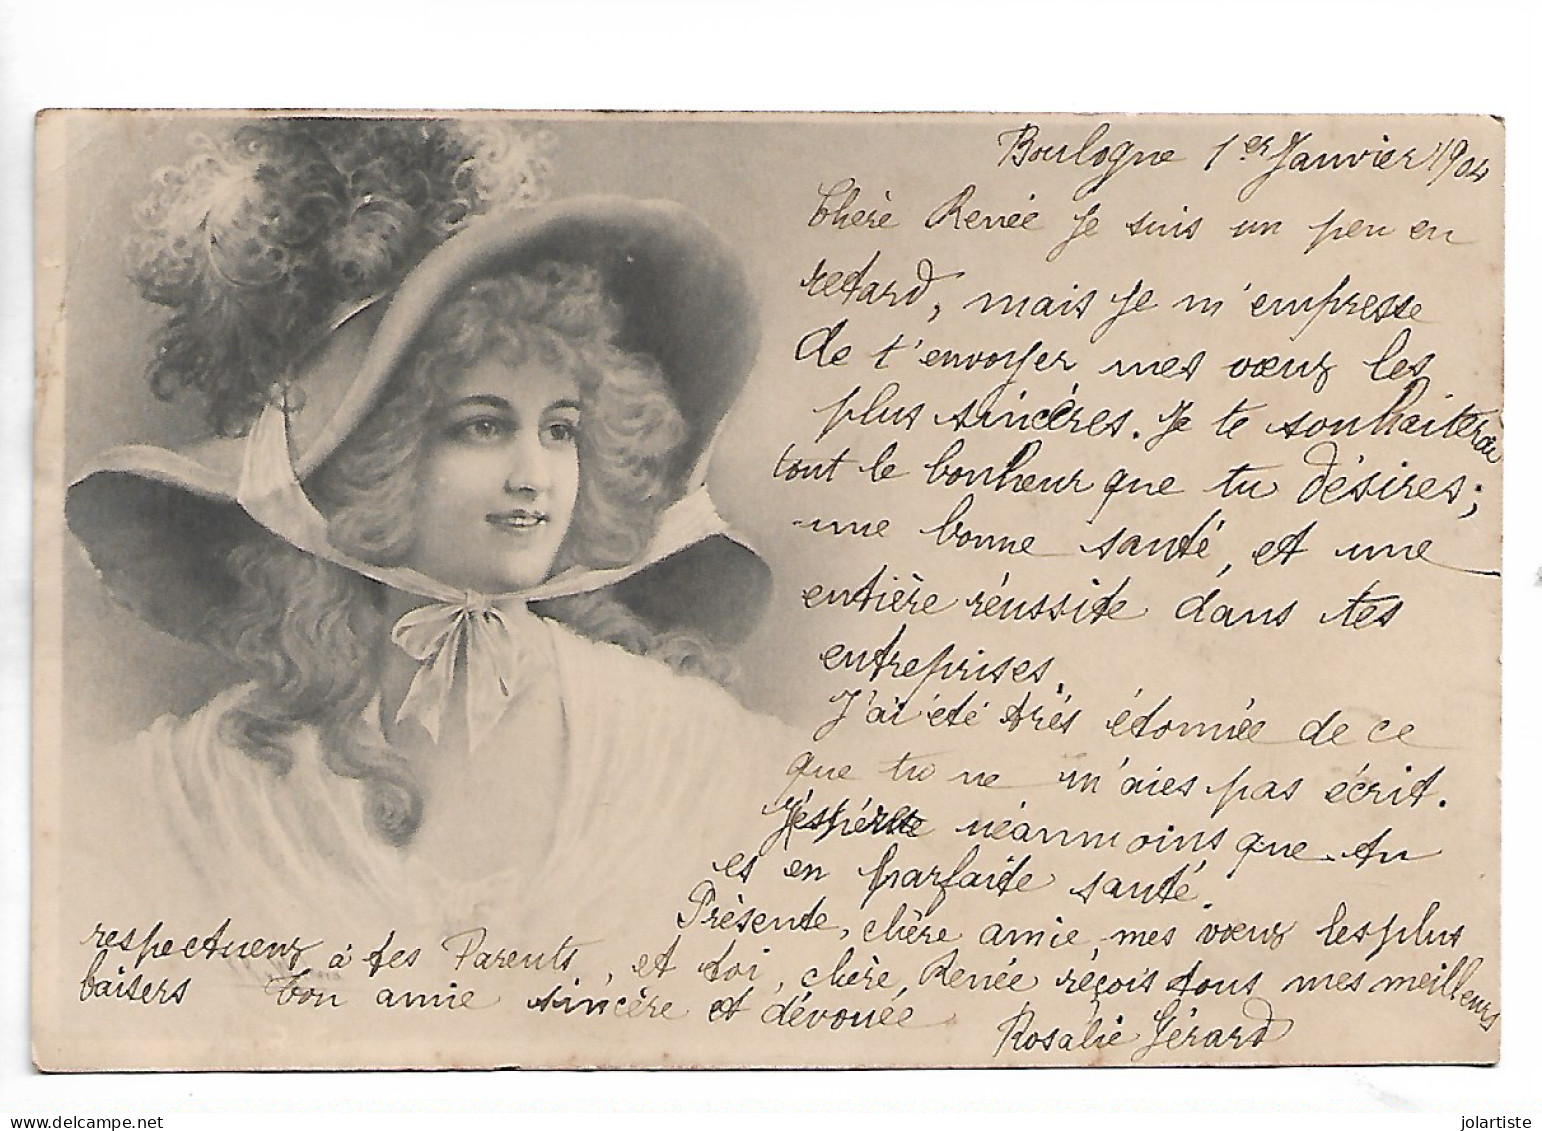 Boulogne 1er Janvier 1904
Chère Renée Je suis un peu en
retard, mais Je m'empresse
de t'envoyer mes vœux les
plus sincères. Je te souhaiterai
tout le bonheur que tu désires;
une bonne santé, et une
entière réussite dans tes
entreprises.
J'ai été très étonnée de ce
que tu ne m'aies pas écrit.
J'éspére néanmoins que tu
es en parfaite santé.
Présente, chère amie, mes vœux les plus
respectueux à tes Parents, et toi, chère, Renée réçois tous mes meilleurs
baisers Ton amie sincère et dévouée
Rosalie Gérard
jolartiste